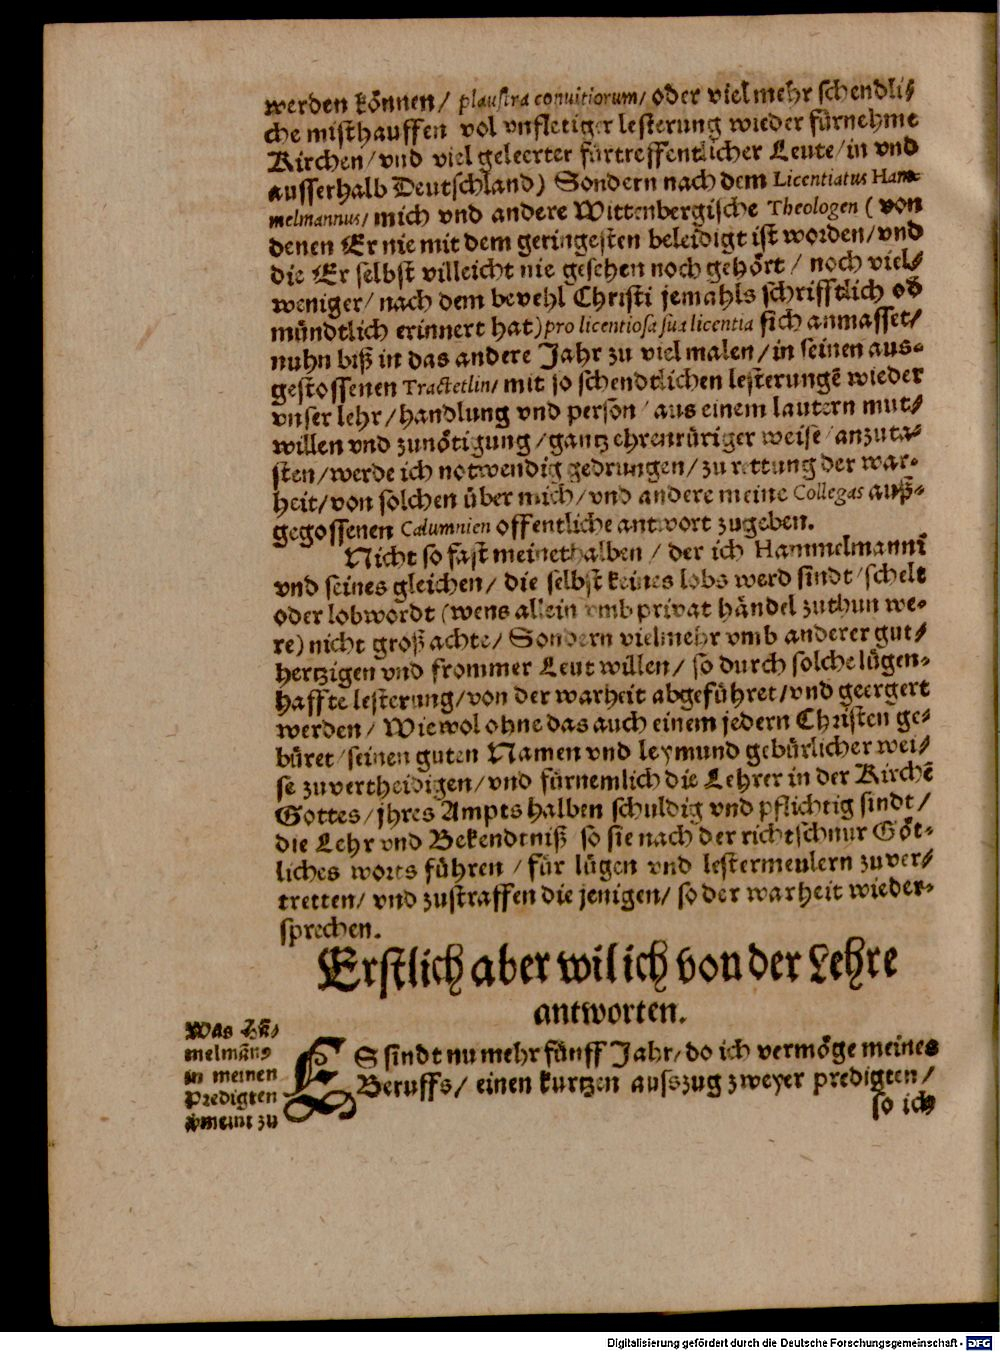 werden können/ plaustra conuitiorum/ oder vielmehr schendli⸗
che misthauffen vol vnfletiger lesterung wieder fürnehme
Kirchen/ vnd viel geleerter fürtreffentlicher Leute/ in vnd
ausserhalb Deutschland) Sondern nach dem Licentiatus Ham⸗
melmannus/ mich vnd andere Wittenbergische Theologen (von
denen Er nie mit dem geringesten beleidigt ist worden/ vnd
die Er selbst villeicht nie gesehen noch gehört/ noch viel⸗
weniger/ nach dem bevehl Christi jemahls schrifftlich od
mündtlich erinnert hat) pro licentiosa sua licentia sich anmasset/
nuhn biß in das andere Jahr zu viel malen/ in seinen aus⸗
gestossenen Tractetlin/ mit so schendtlichen lesterungē wieder
vnser lehr/ handlung vnd person/ aus einem lautern mut⸗
willen vnd zunötigung/ gantz ehrenrüriger weise/ anzuta⸗
sten/ werde ich notwendig gedrungen/ zu rettung der war⸗
heit/ von solchen über mich/ vnd andere meine Collegas auß⸗
gegossenen Calumnien offentliche antwort zugeben.
Nicht so fast meinethalben/ der ich Hammelmanni
vnd seines gleichen/ die selbst keines lobs werd sindt/ schelt
oder lobwordt (wens allein vmb privat händel zuthun we⸗
re) nicht groß achte/ Sondern vielmehr vmb anderer gut⸗
hertzigen vnd frommer Leut willen/ so durch solche lügen⸗
haffte lesterung/ von der warheit abgeführet/ vnd geergert
werden/ Wiewol ohne das auch einem jedern Christen ge⸗
büret/ seinen guten Namen vnd leymund gebürlicher wei⸗
se zuvertheidigen/ vnd fürnemlich die Lehrer in der Kirchē
Gottes/ jhres Ampts halben schuldig vnd pflichtig sindt/
die Lehr vnd Bekendtniß so sie nach der richtschnur Göt⸗
liches worts führen/ für lügen vnd lestermeulern zuver⸗
tretten/ vnd zustraffen die jenigen/ so der warheit wieder⸗
sprechen.
Erstlich aber wil ich von der Lehre
antworten.
Was Hā⸗
melmān⸗
in meinen
Predigten
vmeint zu
ES sindt nu mehr fünff Jahr/ do ich vermöge meines
Beruffs/ einen kurtzen auszug zweyer predigten/
so ich
Digitalisierung gefördert durch die Deutsche Forschungsgemeinschaft - DFG